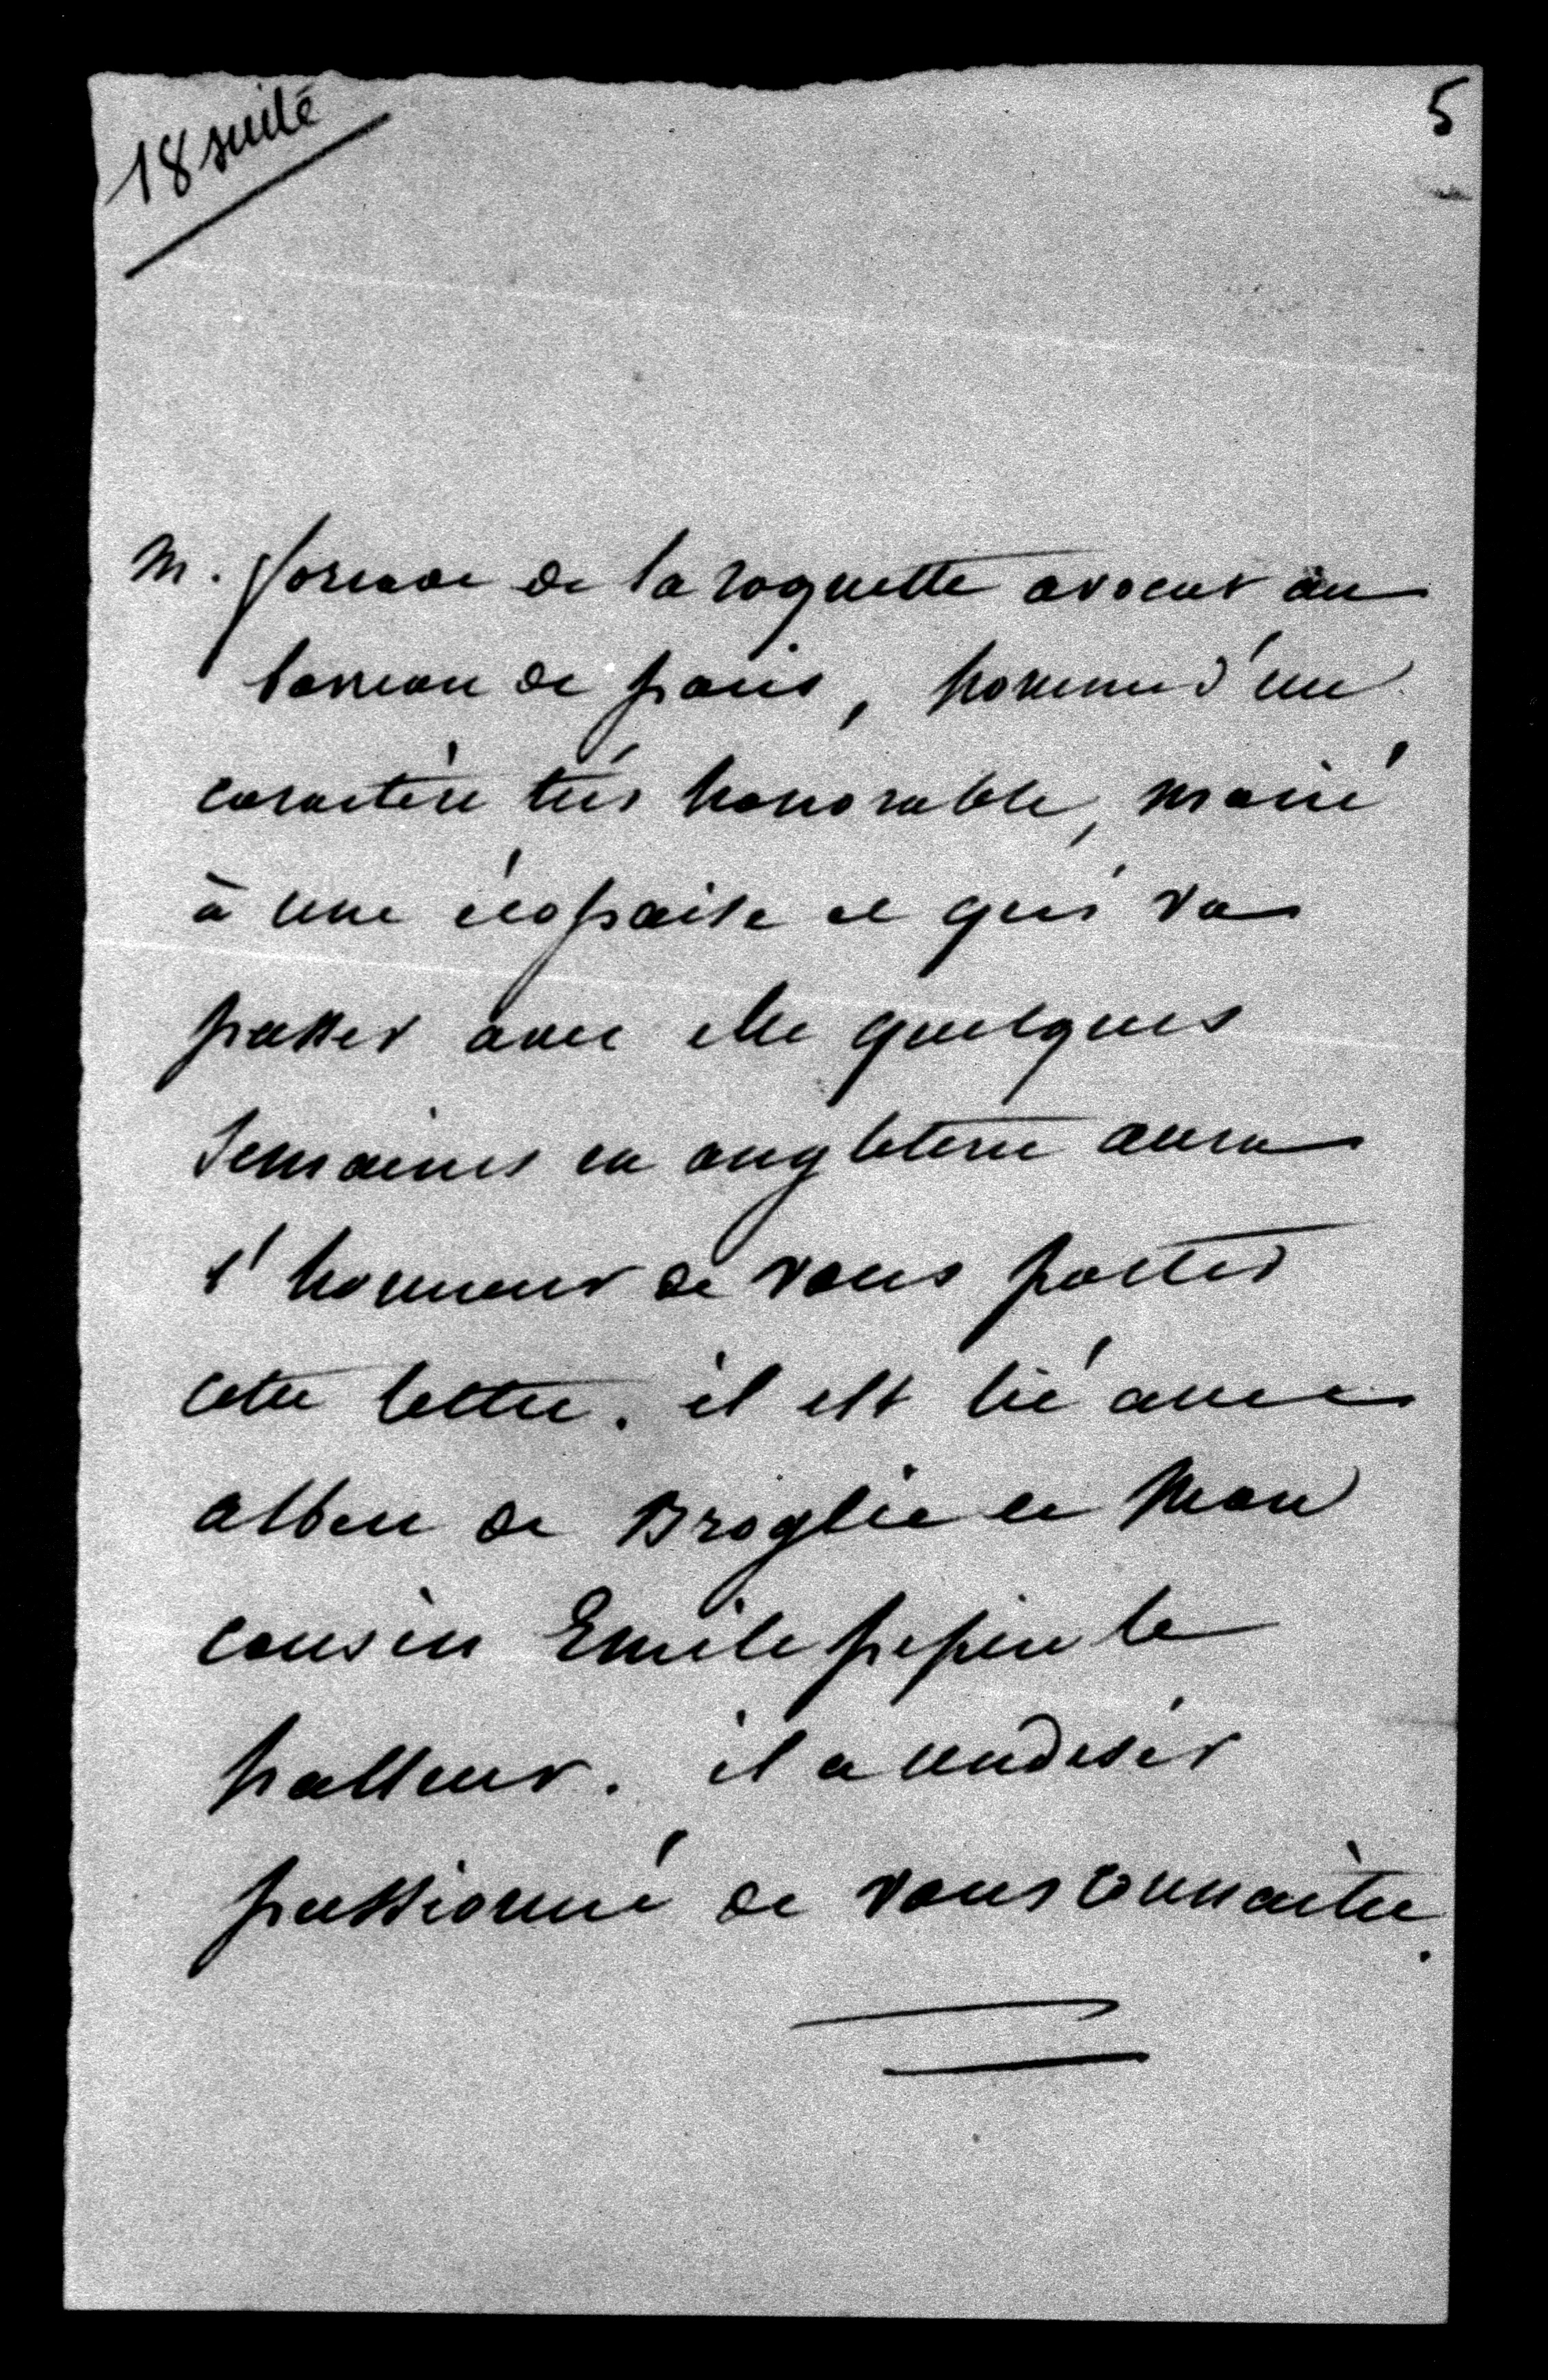 18 suite
5
M. forcade de la roquette avocat au
barreau de paris, homme d'un
caractère très honorable, marié
à une écossaise et qui va
passer avec elle quelques
semaines en angleterre aura
l'honneur de vous porter
cette lettre. il est lié avec
albert de Broglie et mon
cousin Emile pepin le
halleur. il a un desir
passionné de vous connaitre.